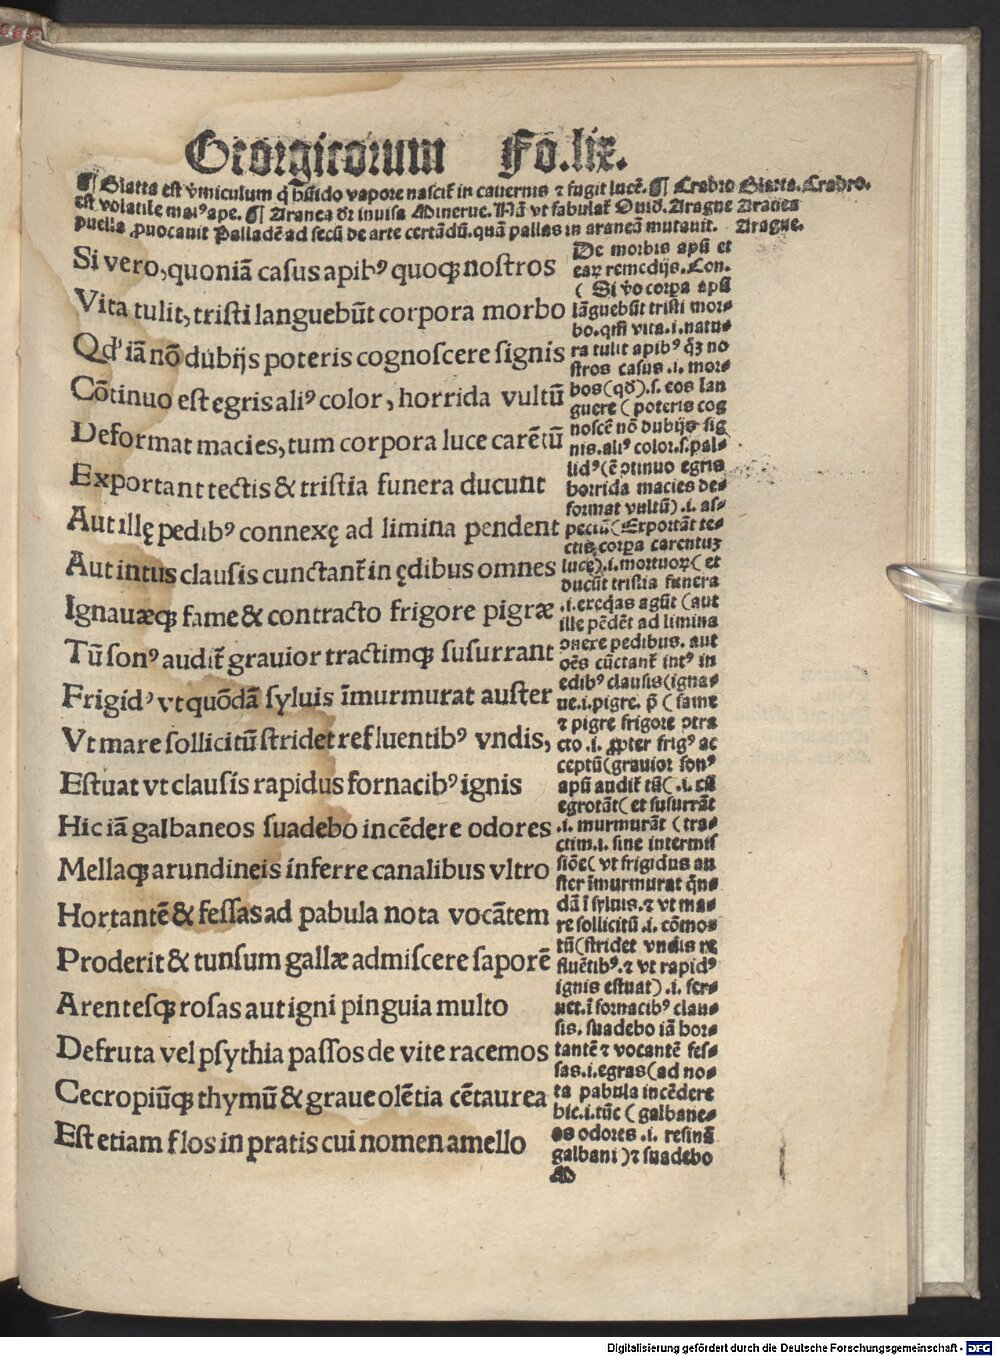 Georgicorum Fo.lix.
¶ Blatta est v̄miculum q̄ hūido vapore nascit᷑ in cauernis ⁊ fugit lucē. ¶ Crabro Blatta. Crabro.
est volatile maiꝰ ape. ¶ Aranea d̄r inuisa Minerue. Nā vt fabulat᷑ Ouid. Aragne Aranea
puella ꝓuocauit Palladē ad secū de arte certādū. quā pallas in araneā mutauit. Aragne.
Si vero, quoniā casus apibꝰ quoqꝫ nostros
Vita tulit, tristi languebūt corpora morbo
Qd' iā nō dubijs poteris cognoscere signis
Cōtinuo est egris aliꝰ color, horrida vultū
Deformat macies, tum corpora luce carētū
Exportant tectis & tristia funera ducunt
Aut illę pedibꝰ connexę ad limina pendent
Aut intus clausis cunctant᷑ in ędibus omnes
Ignauæqꝫ fame & contracto frigore pigræ
Tū sonꝰ audit᷑ grauior tractimqꝫ susurrant
Frigidꝰ vt quōdā syluis īmurmurat auster
Vt mare sollicitū stridet refluentibꝰ vndis,
Estuat vt clausis rapidus fornacibꝰ ignis
Hic iā galbaneos suadebo incēdere odores
Mellaqꝫ arundineis inferre canalibus vltro
Hortantē & fessas ad pabula nota vocātem
Proderit & tunsum gallæ admiscere saporē
Arentesqꝫ rosas aut igni pinguia multo
Defruta vel psythia passos de vite racemos
Cecropiūqꝫ thymū & graue olētia cētaurea
Est etiam flos in pratis cui nomen amello
De morbis apū et
eaꝝ remedijs. Con.
( Si v̄o corpa apū
lāguebūt tristi mor⸗
bo. qm̄ vita .i. natu⸗
ra tulit apibꝰ q̄ꝫ no
stros casus .i. mor⸗
bos (qd̄) .s. eos lan
guere ( poteris cog
noscē nō dubijs sig
nis. aliꝰ color .s. pal⸗
lidꝰ (ē ↄtinuo egris
horrida macies de⸗
format vultū) .i. as⸗
pectū (Exportāt te⸗
ctis corpa carentuꝫ
luce) .i. mortuoꝝ ( et
ducūt tristia funera
.i. exeq̄as agūt (aut
ille pēdēt ad limina
ↄnexe pedibus. aut
oēs cūctant᷑ intꝰ in
edibꝰ clausis (igna⸗
ue .i. pigre. p̄ ( fame
⁊ pigre frigore ↄtra
cto .i. ꝓpter frigꝰ ac
ceptū (grauior sonꝰ
apū audit᷑ tū( .i. cū
egrotāt( et susurrāt
.i. murmurāt ( tra⸗
ctim .i. sine intermis
siōe( vt frigidus au
ster īmurmurat q̄n⸗
dā ī syluis. ⁊ vt ma⸗
re sollicitū .i. cōmo⸗
tū (stridet vndis re
fluētibꝰ. ⁊ vt rapidꝰ
ignis estuat) .i. fer⸗
uet. ī fornacibꝰ clau⸗
sis. suadebo iā hor⸗
tantē ⁊ vocantē fes⸗
sas .i. egras (ad no⸗
ta pabula incēdere
hic .i. tūc ( galbane⸗
os odores .i. resinā
galbani ) ⁊ suadebo
Digitalisierung gefördert durch die Deutsche Forschungsgemeinschaft - DFG